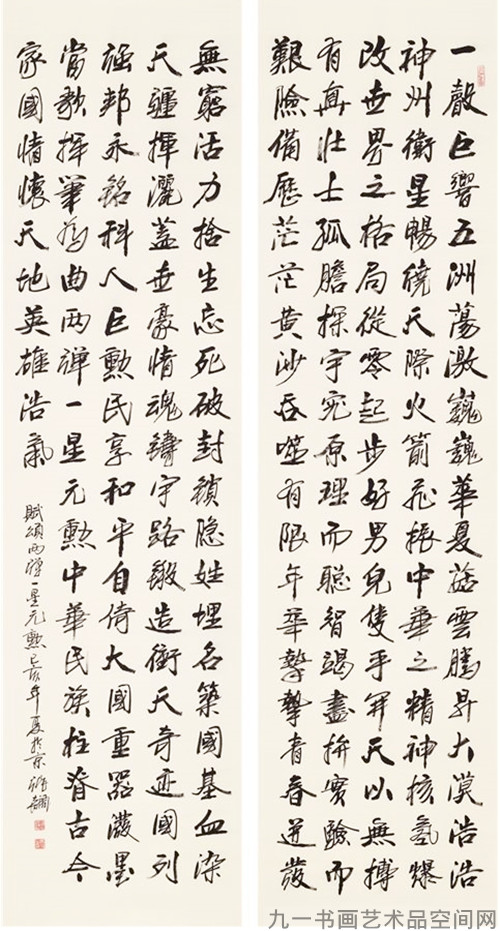 一聲巨響五洲蕩激巍巍華夏菇雲騰昇大漠浩浩
神州衛星暢繞天際火箭飛振中華之精神核氫爆
改世界之格局從零起步好男兒隻手開天以無搏
有真壯士孤膽探宇究原理而聰智竭盡拚實驗而
艱險備歷茫茫黃沙吞噬有限年華摯摯青春迸發
無窮活力捨生忘死破封鎖隐姓埋名築國基血染
天疆揮灑蓋世豪情魂鑄宇路鍛造衝天奇迹國列
强邦永銘科人巨勳民享和平自倚大國重器潑墨
當歌揮筆為曲兩彈一星元勳中華民族柱脊古今
家國情懷天地英雄浩氣
賦頌兩彈一星元勳己亥年夏於京
九一书画艺术品空间网